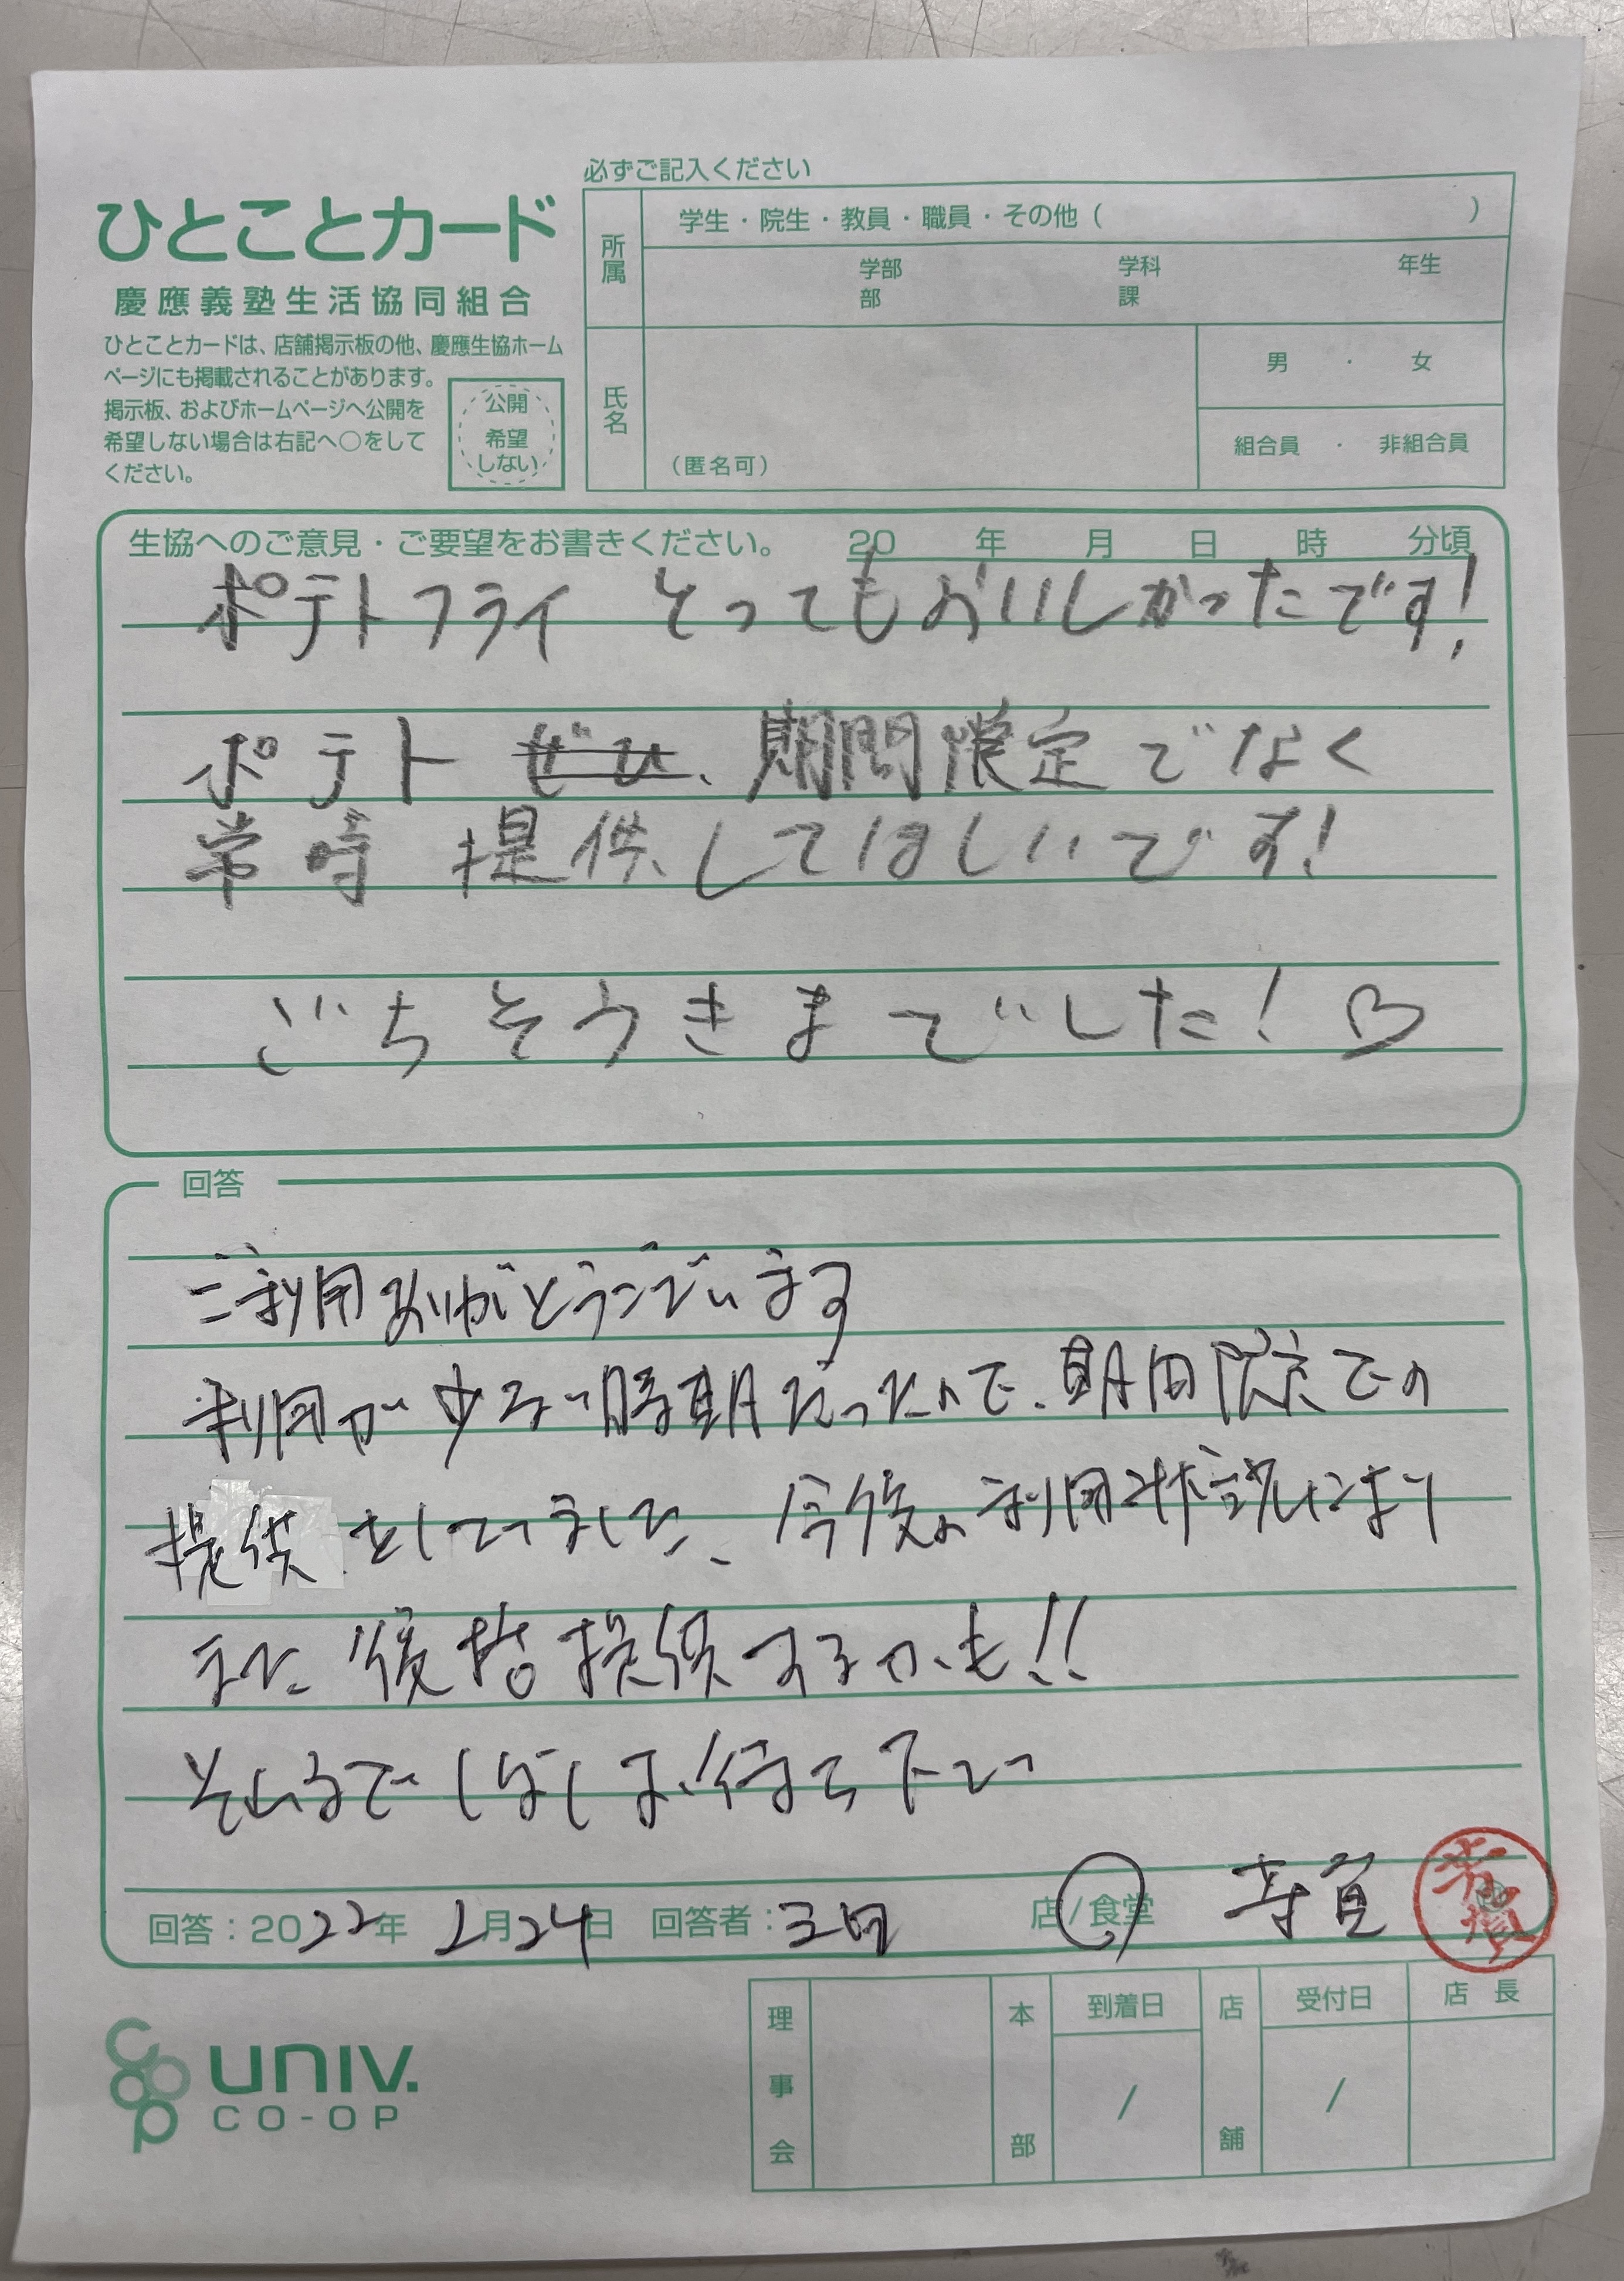 必ずご記入ください
ひとことカード
慶應義塾生活協同組合
ひとことカードは、店舗掲示板の他、慶應生協ホーム
ページにも掲載されることがあります。
掲示板、およびホームページへ公開を
希望しない場合は右記へ○をして
ください。
公開
希望
しない
所属
学生・院生・教員・職員・その他（　）
学部 学科 年生
部 課
氏名
（匿名可）
男 ・ 女
組合員 ・ 非組合員
生協へのご意見・ご要望をお書きください。 20 年 月 日 時 分頃
ポテトフライ とってもおいしかったです!
ポテト ぜひ、期間限定でなく
常時 提供してほしいです!
ごちそうさまでした! ♡
回答
ご利用ありがとうございます
利用が少ない時期だったので、期間限定での
提供をしていました、今後の利用状況により
また 復活提供するかも!!
それまでしばしお待ち下さい
回答：2022年 2月24日 回答者：三田 店/食堂
理事会
本部
到着日
/
店舗
受付日
/
店長
UNIV.
CO-OP